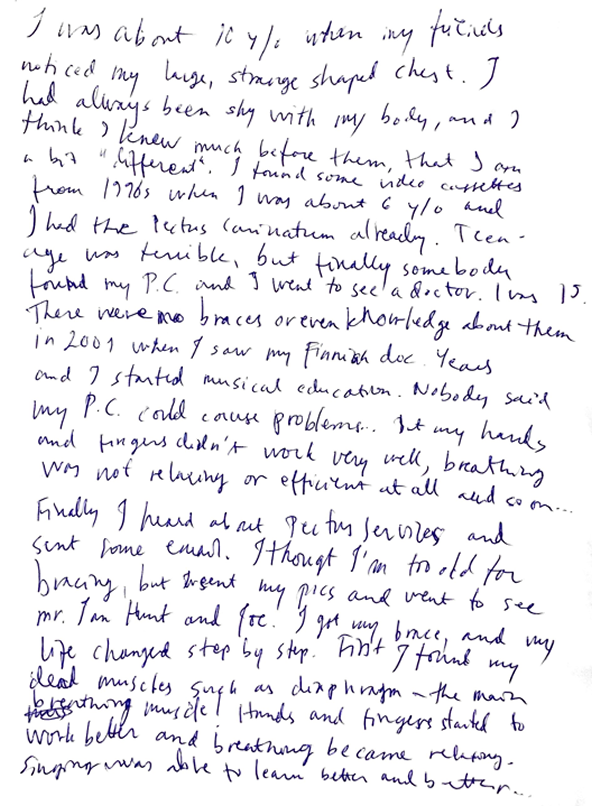 I was about 10 y/o when my friends
noticed my large, strange shaped chest. I
had always been shy with my body, and I
think I knew much before them, that I am
a bit "different". I found some video cassettes
from 1990s when I was about 6 y/o and
I had the Pectus Carinatum already. Teen-
age was terrible, but finally somebody
found my P.C. and I went to see a doctor. I was 15.
There were no braces or even knowledge about them
in 2001 when I saw my Finnish doc. Years
and I started musical education. Nobody said
my P.C. could couse problems... But my hands
and fingers didn't work very well, breathing
was not relaxing or efficient at all and so on...
Finally I heard about Pectus Services and
sent some email. I thougt I'm too old for
bracing, but I sent my pics and went to see
mr. Ian Hunt and Joe. I got my brace, and my
life changed step by step. First I found my
dead muscles such as diaphragm - the main
breathing muscle! Hands and fingers started to
work better and breathing became relaxing.
Singing was able to learn better and better...